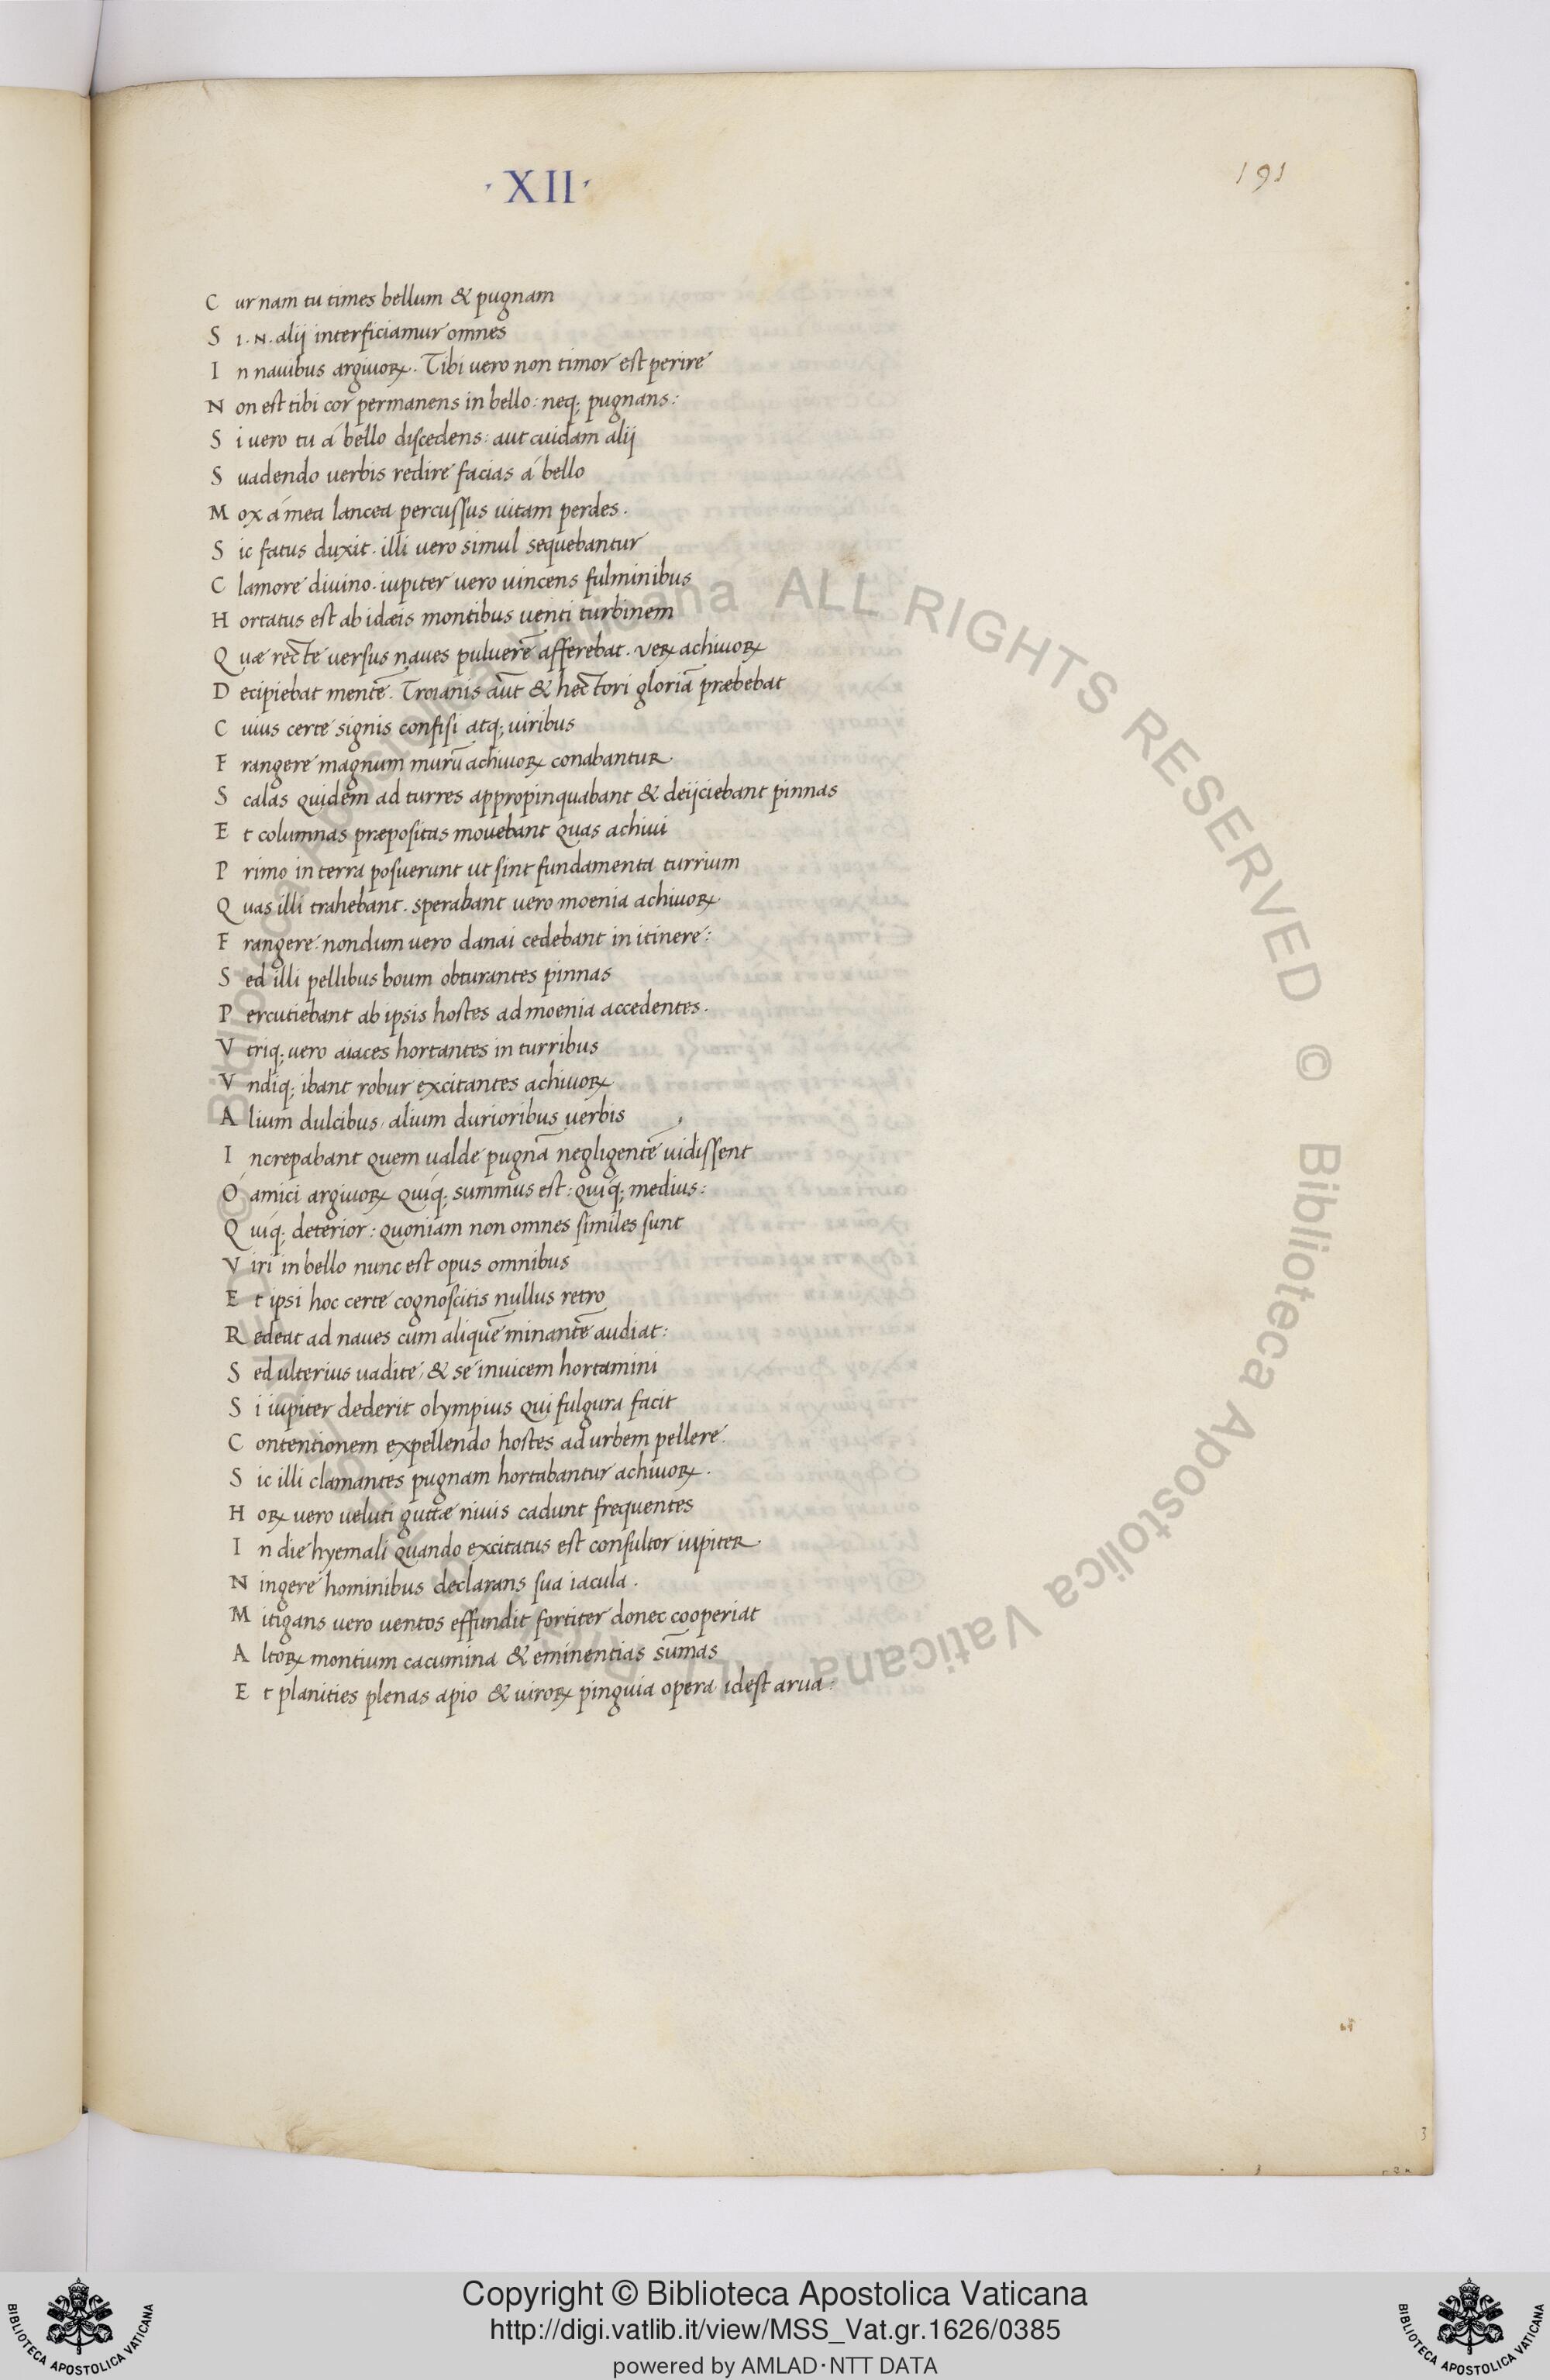 · XII ·
191
C ur nam tu times bellum & pugnam
S i. N. alij interficiamur omnes
I n nauibus argiuoꝝ. Tibi uero non timor est perire
N on est tibi cor permanens in bello: neq; pugnans:
S i uero tu á bello discedens: aut cuidam alij
S uadendo uerbis redire facias á bello
M ox á mea lancea percussus uitam perdes.
S ic fatus duxit. illi uero simul sequebantur
C lamore diuino. iupiter uero uincens fulminibus
H ortatus est ab idæis montibus uenti turbinem
Q uæ recte uersus naues puluerē afferebat. veꝝ achiuoꝝ
D ecipiebat mentē. Troianis aūt & hectori gloriā præbebat
C uius certe signis confisi atq; uiribus
F rangere magnum murū achiuoꝝ conabantur
S calas quidem ad turres appropinquabant & deijciebant pinnas
E t columnas præpositas mouebant quas achiui
P rimo in terra posuerunt ut sint fundamenta turrium
Q uas illi trahebant. sperabant uero moenia achiuoꝝ
F rangere: nondum uero danai cedebant in itinere:
S ed illi pellibus boum obturantes pinnas
P ercutiebant ab ipsis hostes ad moenia accedentes.
V triq; uero aiaces hortantes in turribus
V ndiq; ibant robur excitantes achiuoꝝ
A lium dulcibus, alium durioribus uerbis
I ncrepabant quem ualde pugnā negligentē uidissent
Ó amici argiuoꝝ quiq; summus est: quiq; medius:
Q uiq; deterior: quoniam non omnes similes sunt
V iri in bello nunc est opus omnibus
E t ipsi hoc certe cognoscitis nullus retro
R edeat ad naues cum aliquē minantē audiat:
S ed ulterius uadite, & se inuicem hortamini
S i iupiter dederit olympius qui fulgura facit
C ontentionem expellendo hostes ad urbem pellere.
S ic illi clamantes pugnam hortabantur achiuoꝝ.
H oꝝ uero ueluti guttæ niuis cadunt frequentes
I n die hyemali quando excitatus est consultor iupiter
N ingere hominibus declarans sua iacula.
M itigans uero uentos effundit fortiter donec cooperiat
A ltoꝝ montium cacumina & eminentias sūmas
E t planities plenas apio & uiroꝝ pinguia opera idest arua:
© Biblioteca Apostolica Vaticana ALL RIGHTS RESERVED © Biblioteca Apostolica Vaticana ALL RIGHTS RESERVED
BIBLIOTECA APOSTOLICA VATICANA
Copyright © Biblioteca Apostolica Vaticana
http://digi.vatlib.it/view/MSS_Vat.gr.1626/0385
powered by AMLAD·NTT DATA
BIBLIOTECA APOSTOLICA VATICANA